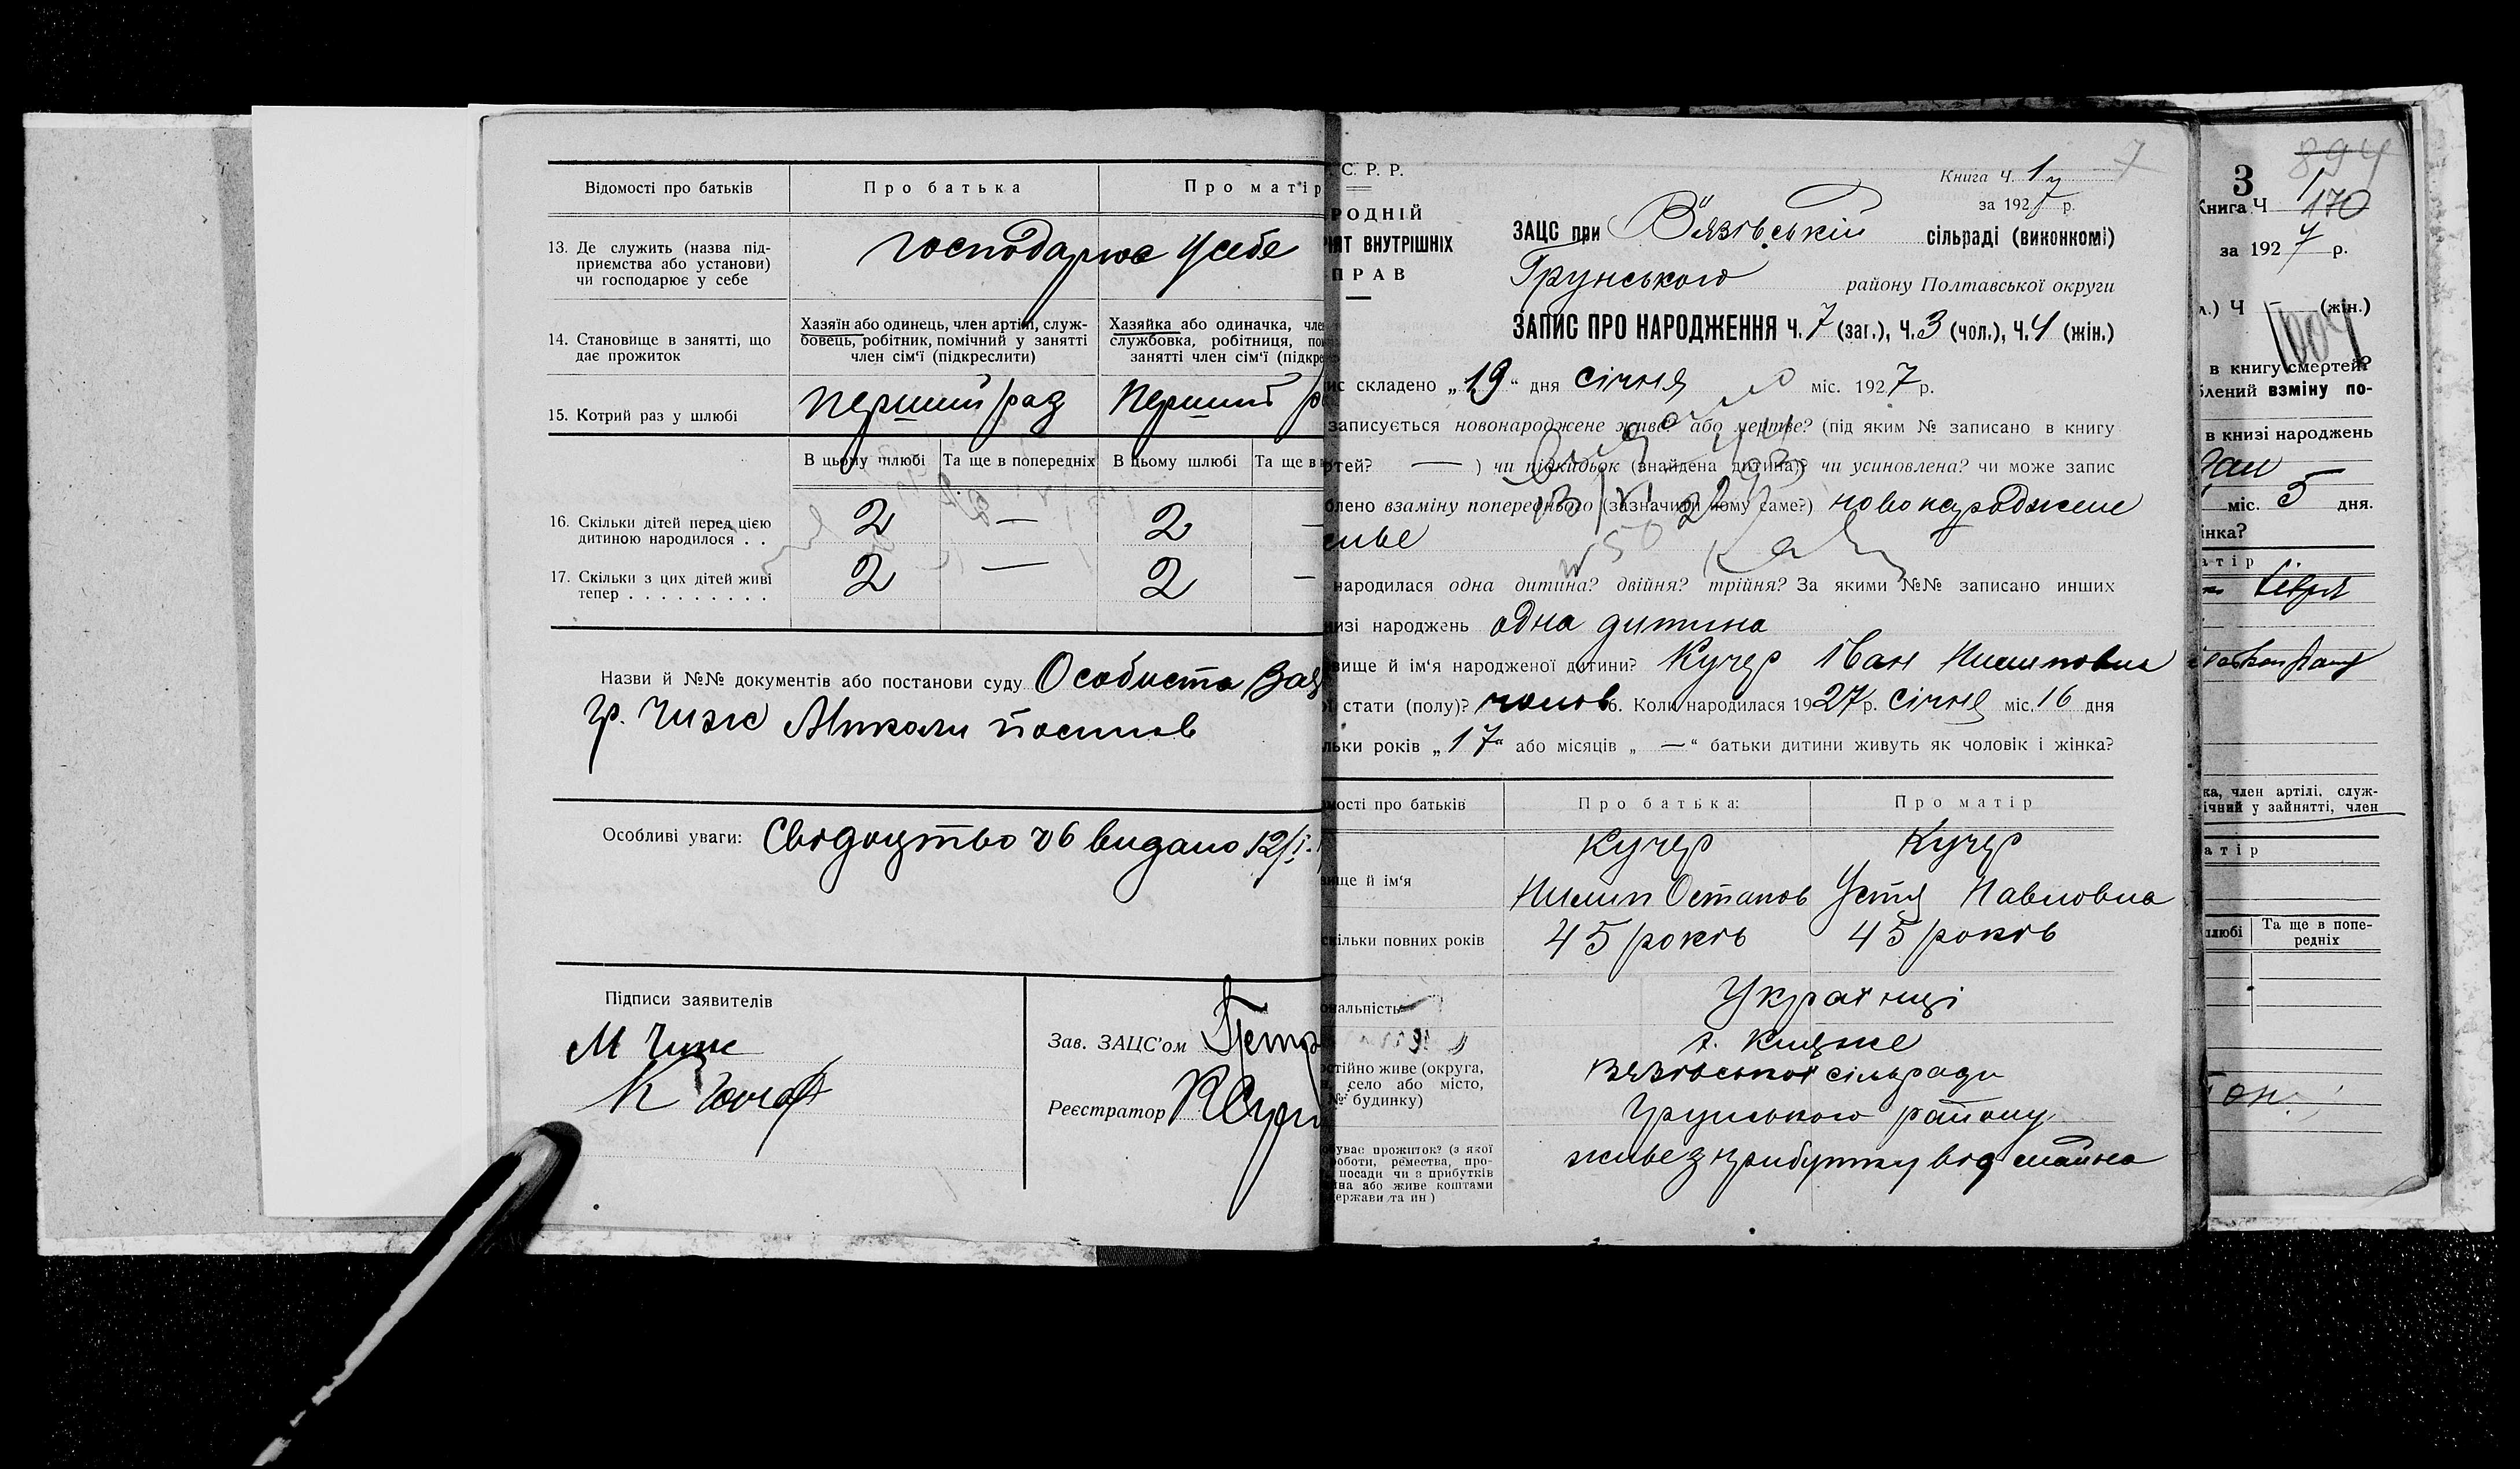 Відомості про батьків
Про батька
Про матір
13. Де служить (назва під-
приємства або установи)
чи господарює у себе
господарює у себе
14. Становище в занятті, що
дає прожиток
Хазяїн або одинець, член артілі, служ-
бовець, робітник, помічний у занятті
член сім'ї (підкреслити)
Хазяйка або одиначка, чле
службовка, робітниця, по
занятті член сім'ї (підкре
15. Котрий раз у шлюбі
перший раз
перший р
В цьому шлюбі
Та ще в попередніх
В цьому шлюбі
Та ще в
16. Скільки дітей перед цією
дитиною народилося . .
2 — 2 —
17. Скільки з цих дітей живі
тепер . . . . . . . . .
2 — 2 —
Назви й №№ документів або постанови суду Особиста зая
гр. Чиж Миколи
Особливі уваги: Свідоцтво №6 видано 12/І.
Підписи заявителів
М Чиж
Зав. ЗАЦС'ом Петр
Реєстратор
С. Р. Р.
РОДНІЙ
ЯТ ВНУТРІШНІХ
ПРАВ
7
Книга Ч. 1
за 1927 р.
ЗАЦС при Вязівській сільраді (виконкомі)
Грунського району Полтавської округи
ЗАПИС ПРО НАРОДЖЕННЯ Ч. 7 (заг.), Ч. 3 (чол.), Ч. 4 (жін.)
ис складено „19" дня січня міс. 1927 р.
записується новонароджене живе? або мертве? (під яким № записано в книгу
ртей? — ) чи підкидьок (знайдена дитина)? чи усиновлена? чи може запис
блено взаміну попереднього (зазначити чому саме?) новонароджене
живе
народилася одна дитина? двійня? трійня? За якими №№ записано инших
изі народжень одна дитина
вище й ім'я народженої дитини? Кучер Іван Пилипович
ї стати (полу)? чолов 6. Коли народилася 1927 р. січня міс. 16 дня
льки років „17" або місяців „—" батьки дитини живуть як чоловік і жінка?
мості про батьків
Про батька:
Про матір
вище й ім'я
Кучер
Пилип Остапов
Кучер
Устя Павловна
скільки повних років
45 років
45 років
ональність
Українці
стійно живе (округа,
село або місто,
№ будинку)
х. Княже
Вязівської сільради
Грунського району
буває прожиток? (з якої
роботи, ремества, про-
посади чи з прибутків
йна або живе коштами
держави та ин)
живе з прибутку від майна
894
3
Книга Ч 1
170
за 1927 р.
л.) Ч (жін.)
1004
в книгу смертей?
блений взміну по-
в книзі народжень
міс. 5 дня.
інка?
атір
ка, член артілі, служ-
ічний у зайнятті, член
атір
шлюбі
Та ще в попе-
редніх